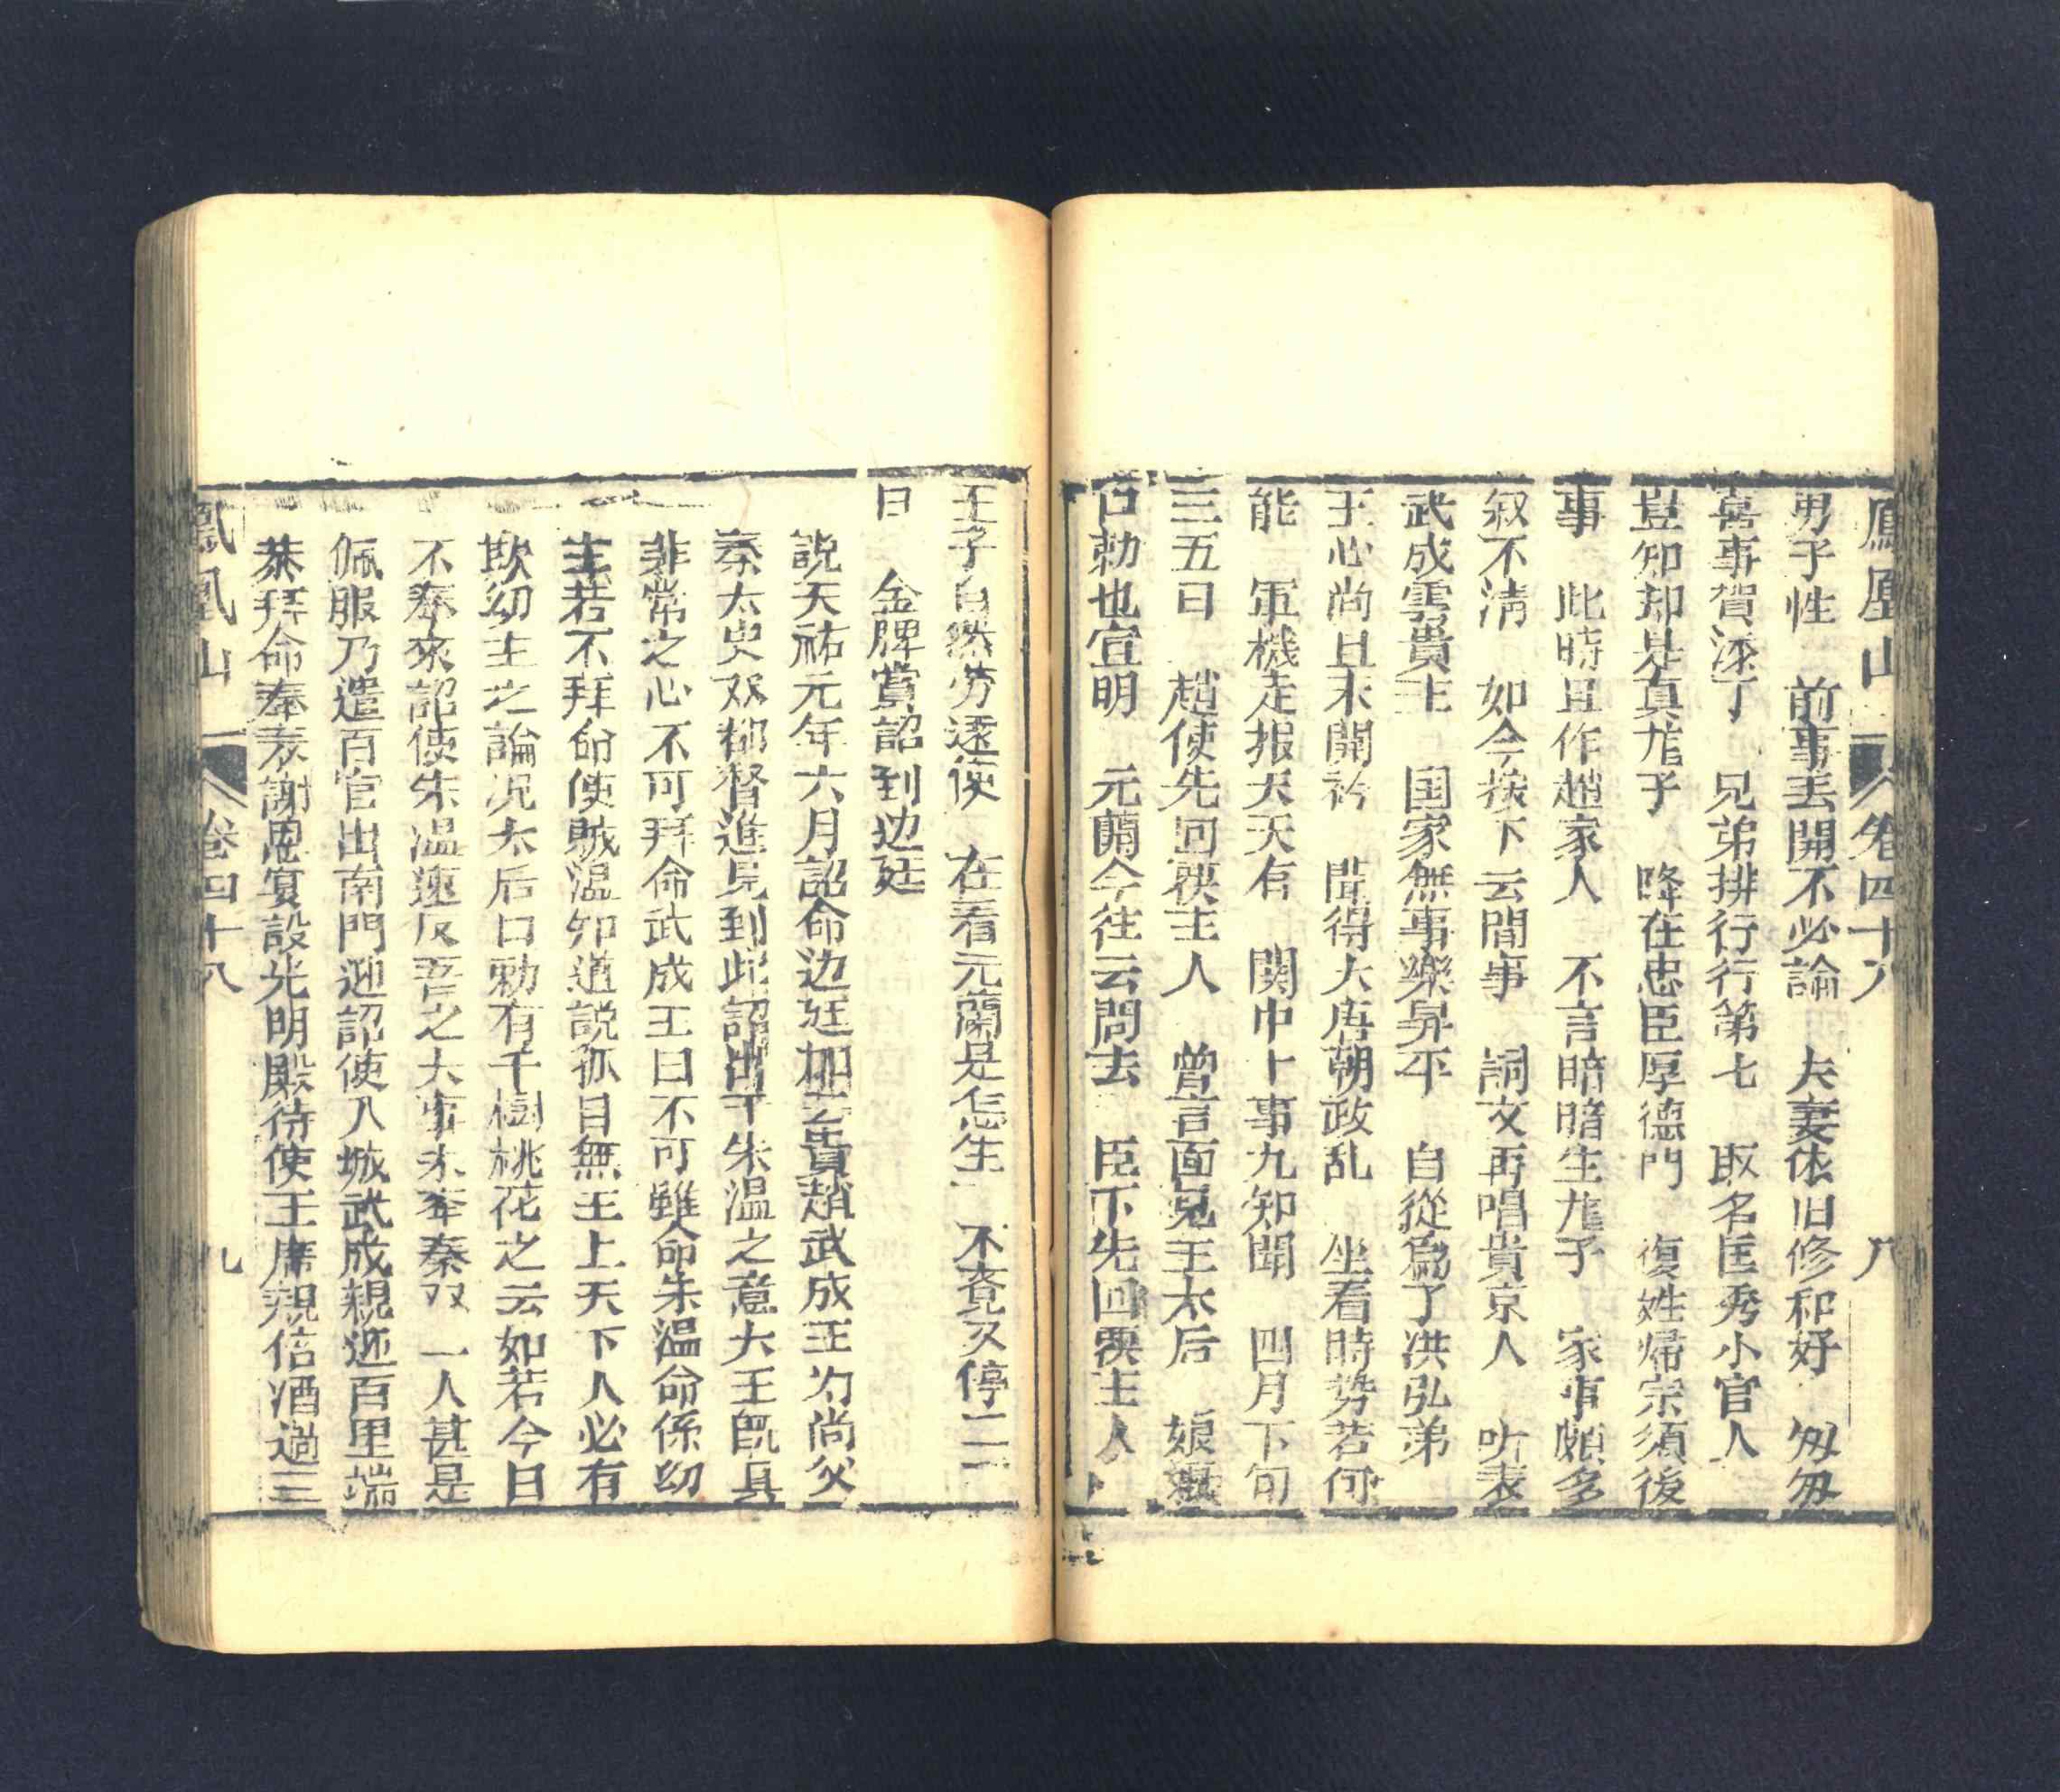 鳳凰山 卷四十八 八
男子性 前事丟開不必論 夫妻依旧修和好 匆匆
喜事賀添丁 兄弟排行行第七 取名匡秀小官人
豈知却是真尨子 降在忠臣厚德門 復姓帰宗須後
事 此時且作趙家人 不言暗暗生尨子 家事頗多
叙不淸 如今按下云間事 詞文再唱貴京人 听表
武成雲貴主 国家無事樂昇平 自從爲了洪弘弟
王心尚且未開衿 聞得大唐朝政乱 坐看時势若何
能 軍機走报天天有 関中十事九知聞 四月下旬
三五日 趙使先回稟主人 曾言面見王太后 娘娘
口勅也宣明 元蘭今往云間去 臣下先回稟主人
王子自然劳逐使 在看元蘭是怎生 不竟又停二二
日 金牌賞詔到边廷
說天祐元年六月詔命边廷加云貴趙武成王为尚父
秦太史双都督進見到此詔出于朱温之意大王旣具
非常之心不可拜命武成王曰不可雖人命朱温命係幼
主若不拜命使賊温知道說孤目無王上天下人必有
欺幼主之論况太后口勅有千樹桃花之云如若今日
不奉來詔使朱温速反吾之大事未奉秦双一人甚是
佩服乃遣百官出南門迎詔使入城武成親迎百里端
恭拜命奉表謝恩宴設光明殿待使王席親信酒過三
鳳凰山 卷四十八 九